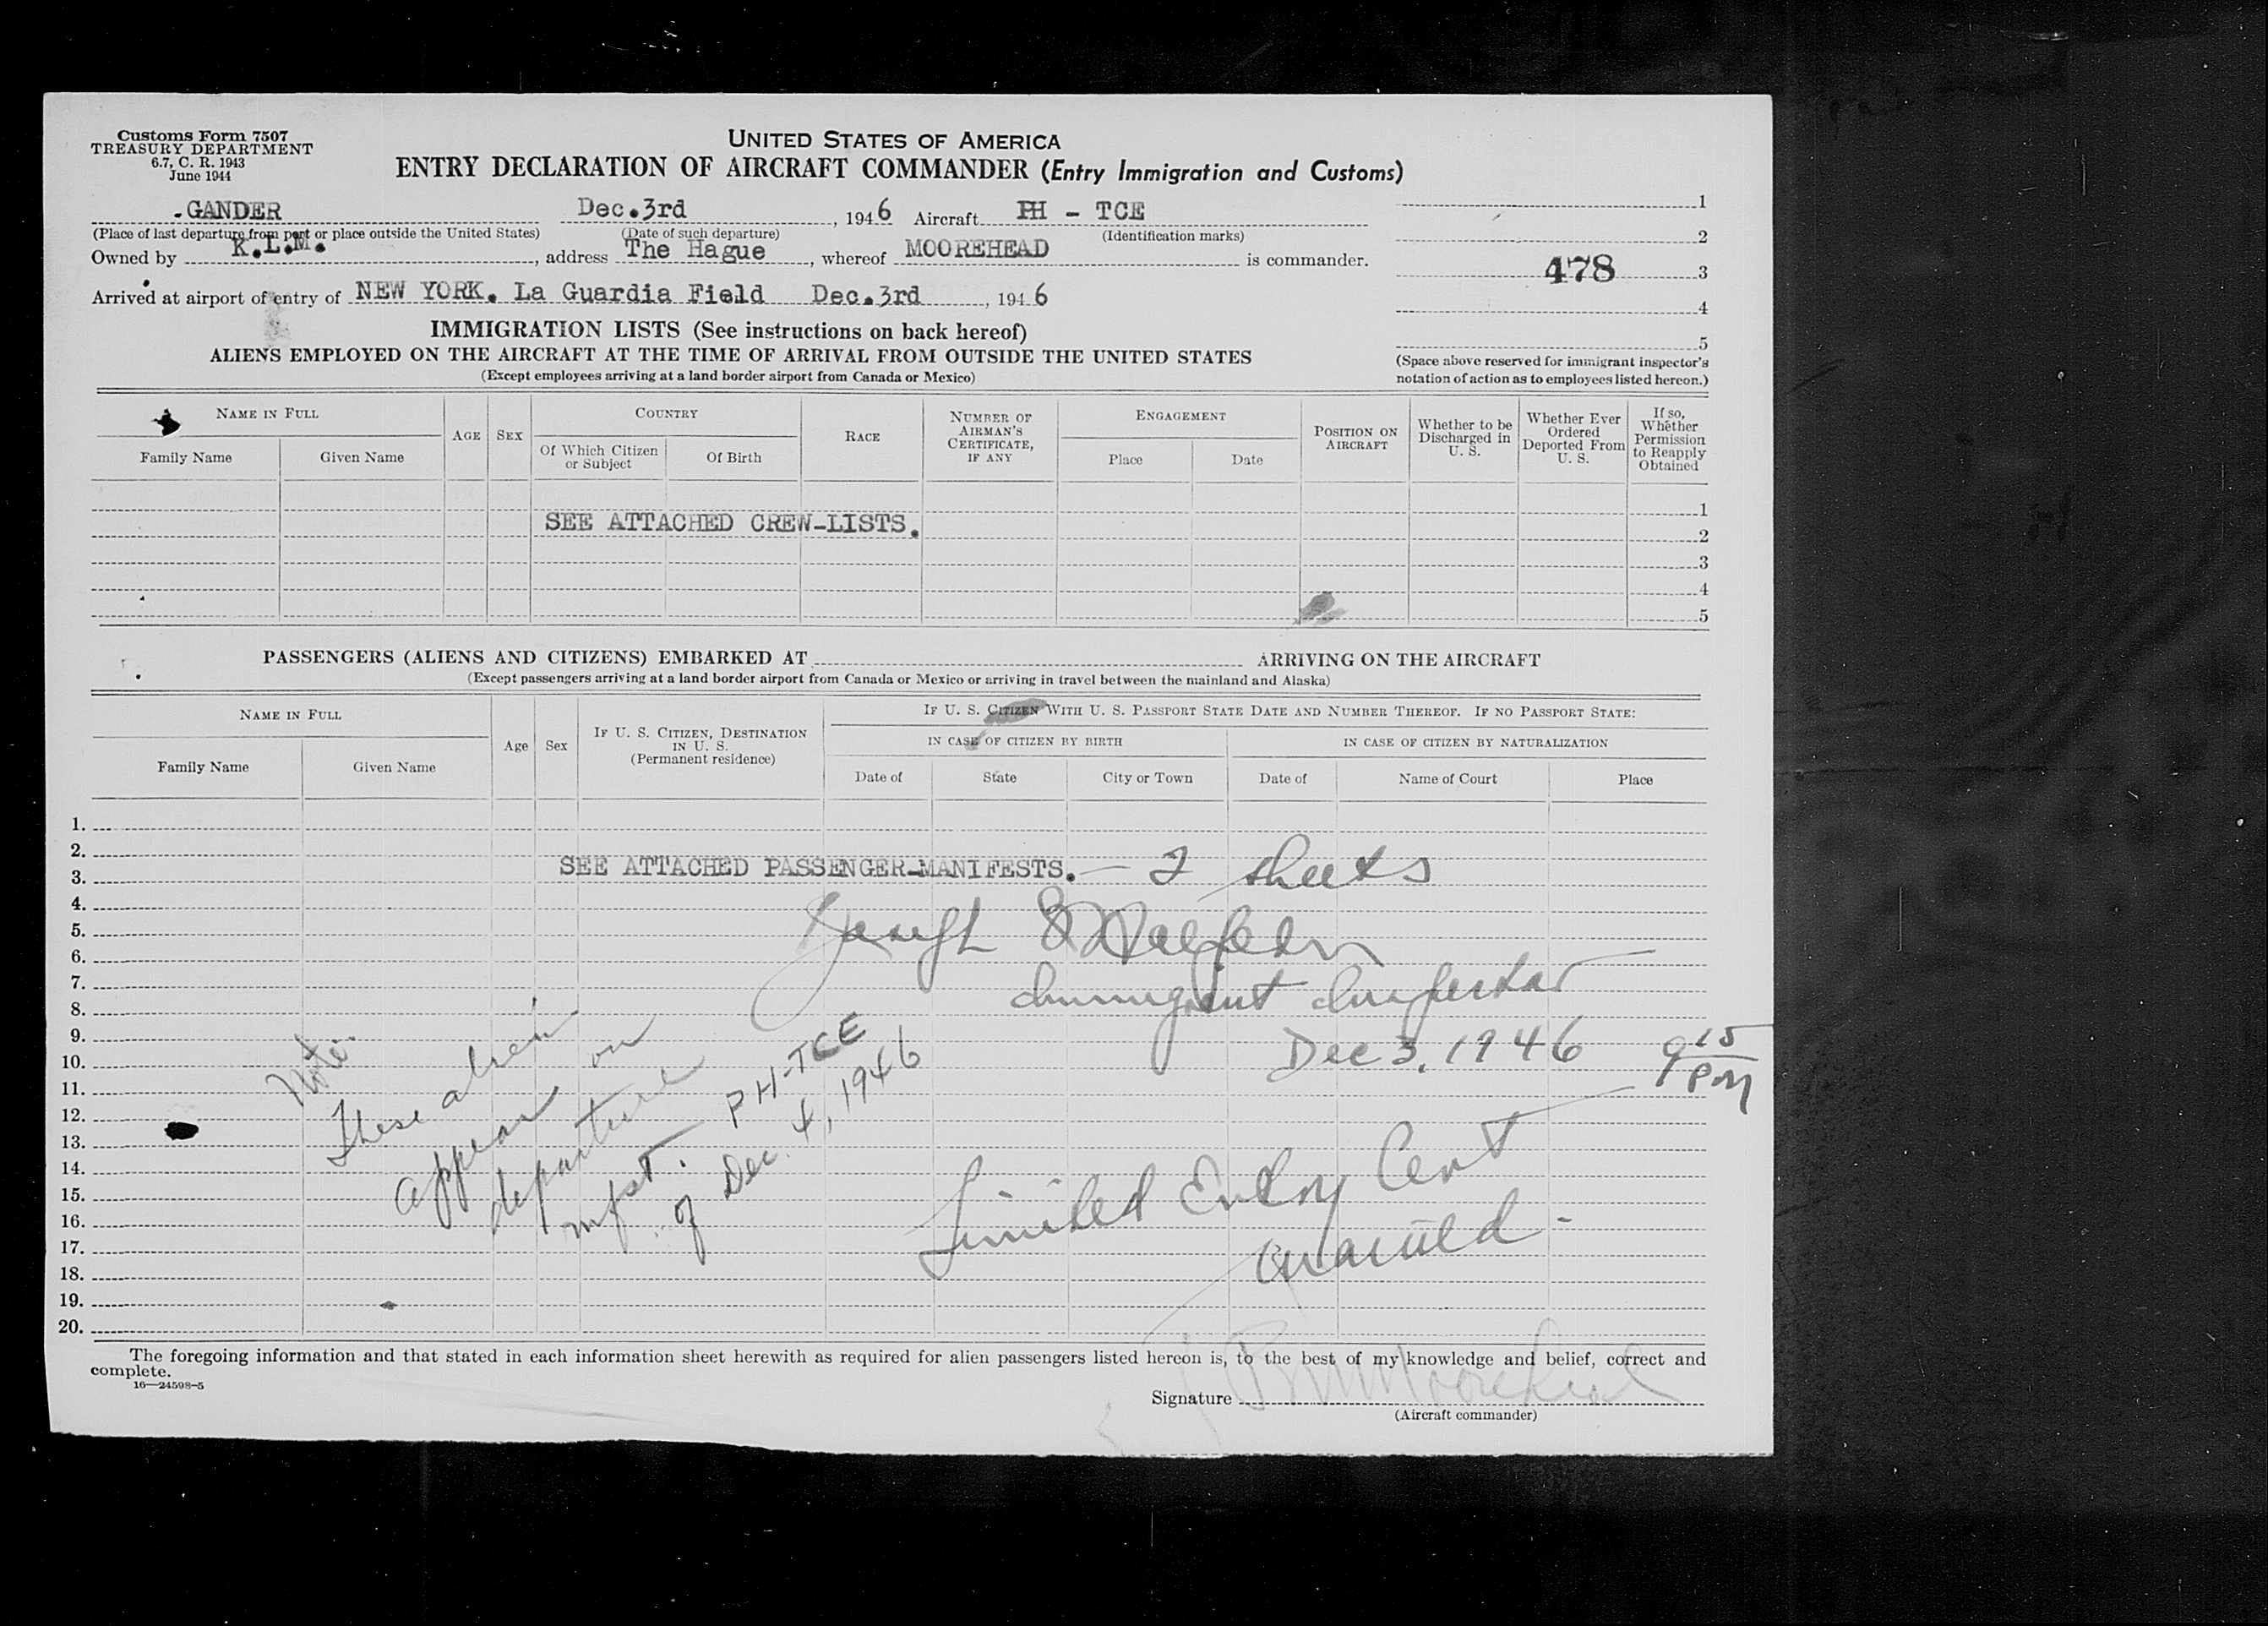 Customs Form 7507
TREASURY DEPARTMENT
6.7, C. R. 1943
June 1944
UNITED STATES OF AMERICA
ENTRY DECLARATION OF AIRCRAFT COMMANDER (Entry Immigration and Customs)
GANDER Dec.3rd, 1946 Aircraft PH - TCE
(Place of last departure from port or place outside the United States) (Date of such departure) (Identification marks)
Owned by K.L.M., address The Hague, whereof MOOREHEAD is commander.
Arrived at airport of entry of NEW YORK. La Guardia Field Dec.3rd, 1946
1
2
478 3
4
5
(Space above reserved for immigrant inspector's
notation of action as to employees listed hereon.)
IMMIGRATION LISTS (See instructions on back hereof)
ALIENS EMPLOYED ON THE AIRCRAFT AT THE TIME OF ARRIVAL FROM OUTSIDE THE UNITED STATES
(Except employees arriving at a land border airport from Canada or Mexico)
NAME IN FULL
Family Name
Given Name
AGE
SEX
COUNTRY
Of Which Citizen
or Subject
Of Birth
RACE
NUMBER OF
AIRMAN'S
CERTIFICATE,
IF ANY
ENGAGEMENT
Place
Date
POSITION ON
AIRCRAFT
Whether to be
Discharged in
U. S.
Whether Ever
Ordered
Deported From
U. S.
If so,
Whether
Permission
to Reapply
Obtained
1
SEE ATTACHED CREW-LISTS.
2
3
4
5
PASSENGERS (ALIENS AND CITIZENS) EMBARKED AT ARRIVING ON THE AIRCRAFT
(Except passengers arriving at a land border airport from Canada or Mexico or arriving in travel between the mainland and Alaska)
NAME IN FULL
Family Name
Given Name
Age
Sex
IF U. S. CITIZEN, DESTINATION
IN U. S.
(Permanent residence)
IF U. S. CITIZEN WITH U. S. PASSPORT STATE DATE AND NUMBER THEREOF. IF NO PASSPORT STATE:
IN CASE OF CITIZEN BY BIRTH
IN CASE OF CITIZEN BY NATURALIZATION
Date of
State
City or Town
Date of
Name of Court
Place
1.
2.
3.
4.
5.
6.
7.
8.
9.
10.
11.
12.
13.
14.
15.
16.
17.
18.
19.
20.
SEE ATTACHED PASSENGER-MANIFESTS. - 2 sheets
Joseph
Immigrant Inspector
Dec 3, 1946 9 15 PM
Note:
These alien
appear on
departure
mfst. PH-TCE
of Dec. 4, 1946
Limited Entry Cert
The foregoing information and that stated in each information sheet herewith as required for alien passengers listed hereon is, to the best of my knowledge and belief, correct and
complete.
16—24598-5
Signature Moorehead
(Aircraft commander)